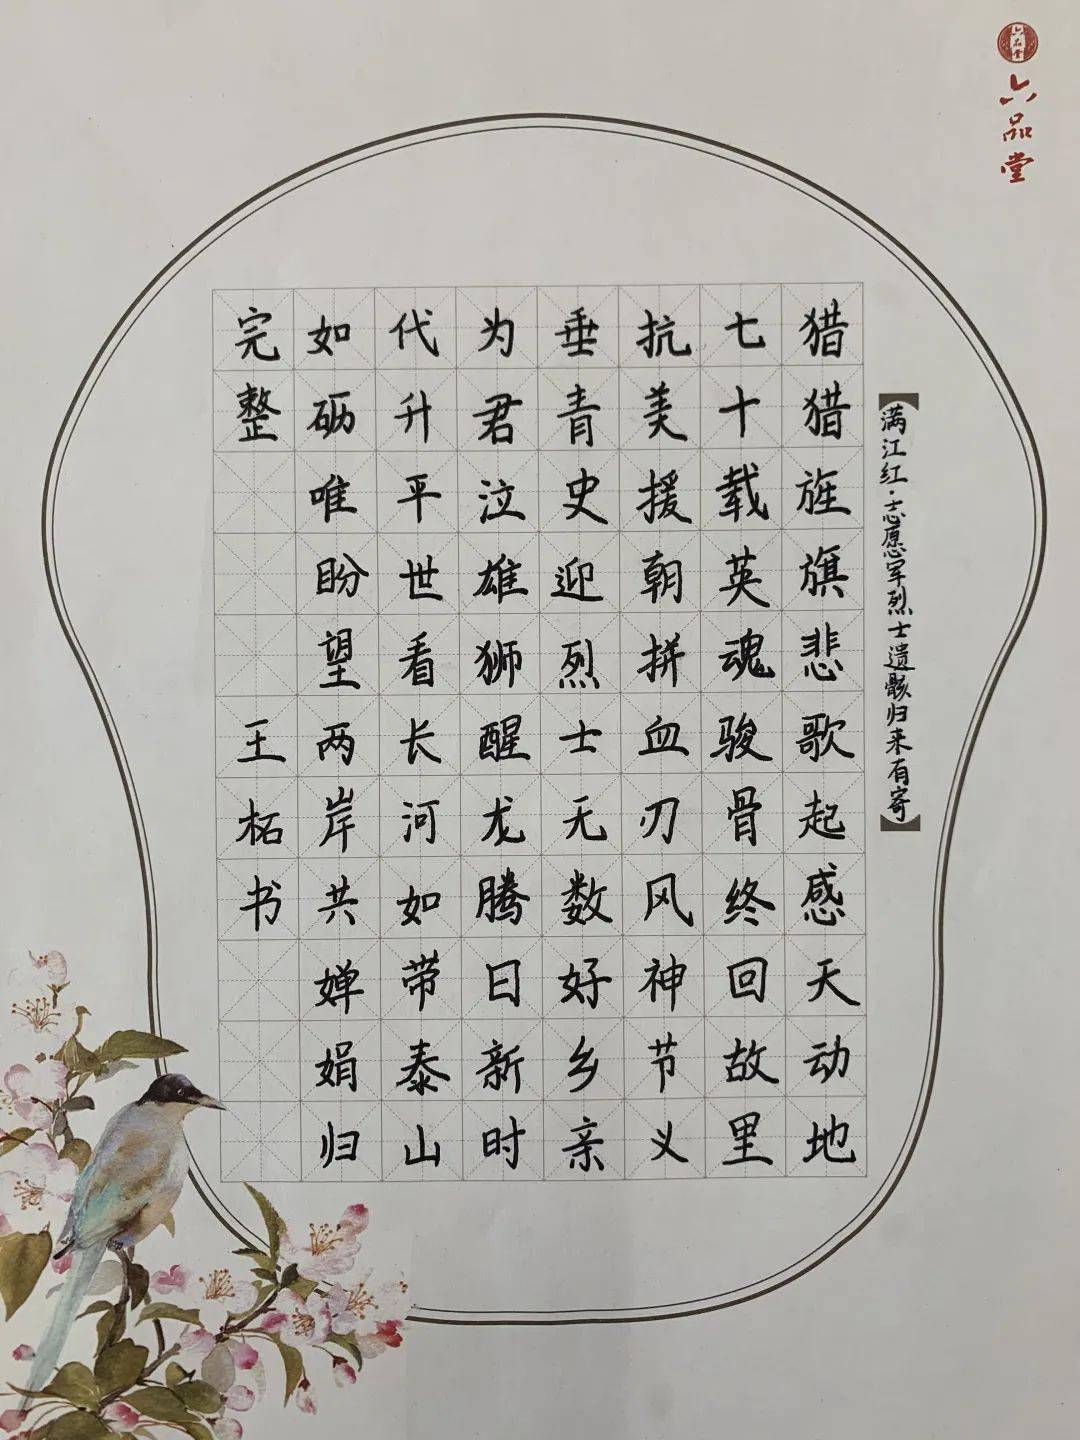 六品堂
六品堂
【满江红·志愿军烈士遗骸归来有寄】
猎猎旌旗悲歌起感天动地
七十载英魂骏骨终回故里
抗美援朝拼血刃风神节义
垂青史迎烈士无数好乡亲
为君泣雄狮醒龙腾日新时
代升平世看长河如带泰山
如砺唯盼望两岸共婵娟归
完整 王柘书